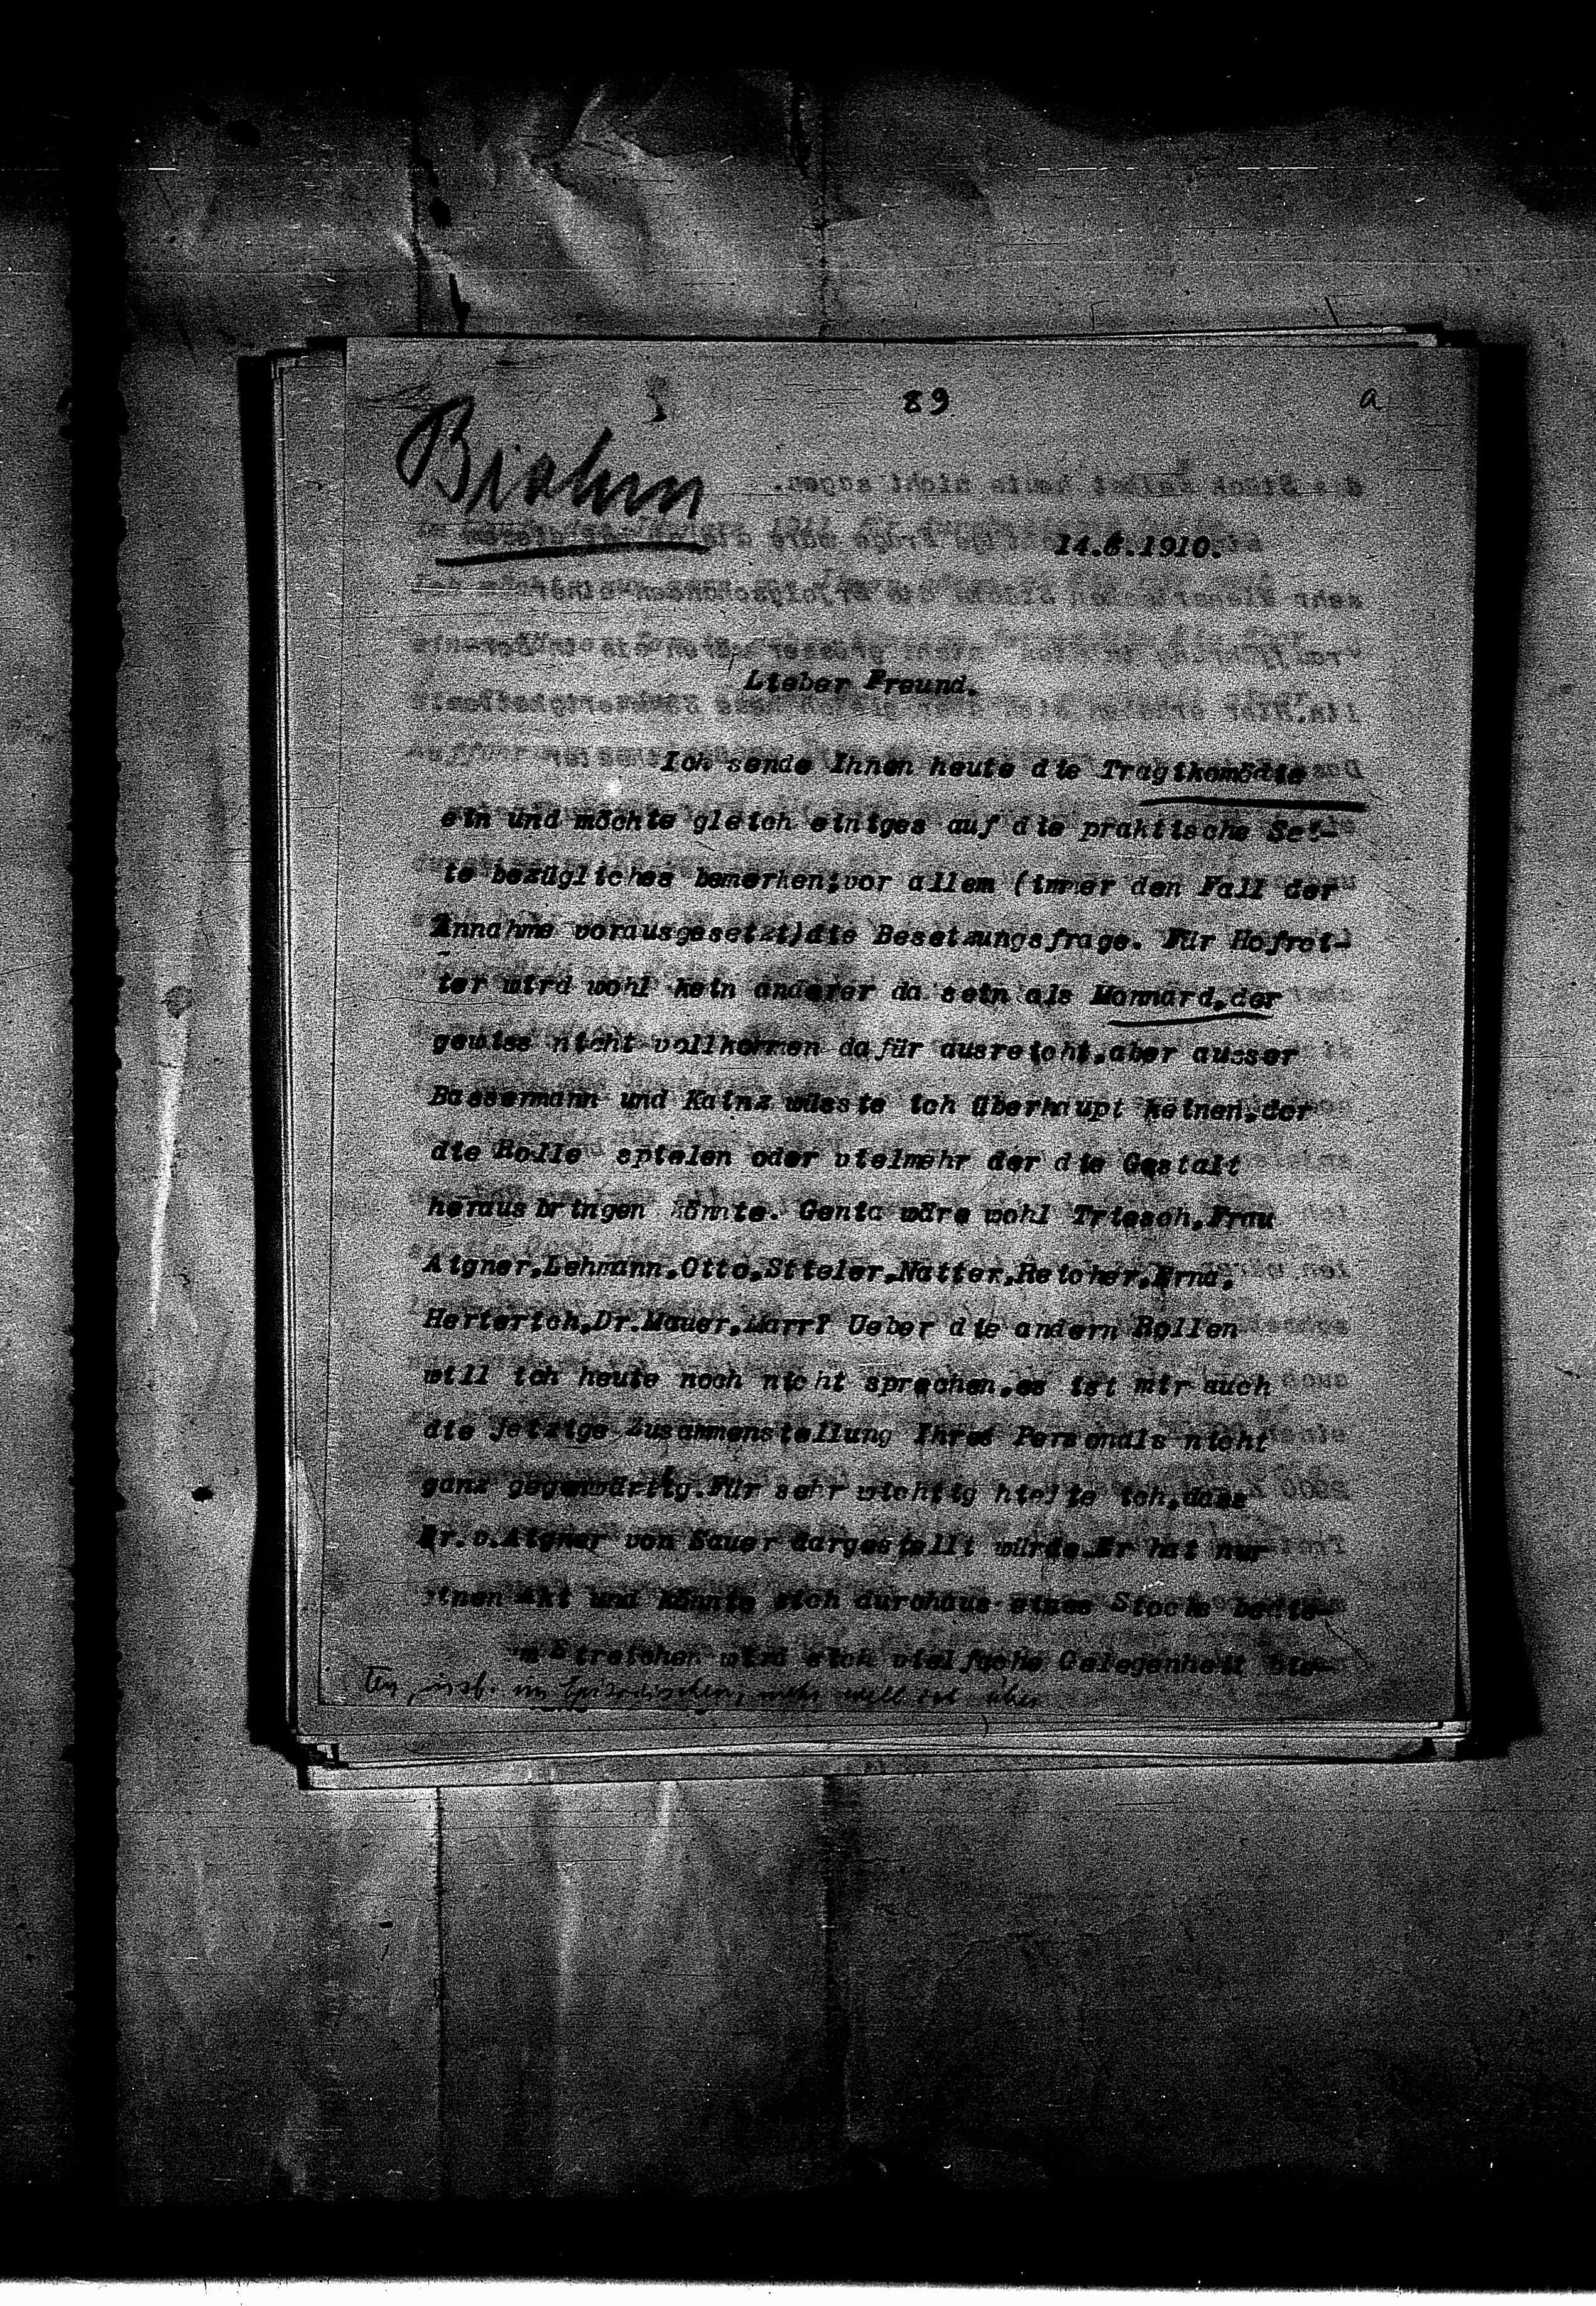 89
a
Brahm
14.6.1910.
Lieber Freund.
Ich sende Ihnen heute die Tragikomödie
ein und möchte gleich einiges auf die praktische Sei-
te bezügliches bemerken;vor allem (immer den Fall der
Annahme vorausgesetzt)die Besetzungsfrage. Für Hofrei-
ter wird wohl kein anderer da sein als Monnard,der
gewiss nicht vollkommen dafür ausreicht,aber ausser
Bassermann und Kainz wüsste ich überhaupt keinen,der
die Rolle spielen oder vielmehr der die Gestalt
herausbringen könnte. Genia wäre wohl Triesch,Frau
Aigner,Lehmann,Otto,Stieler,Natter,Reicher,Erna,
Herterich,Dr.Mauer,Marr? Ueber die andern Rollen
will ich heute noch nicht sprechen,es ist mir auch
die jetzige Zusammenstellung Ihres Personals nicht
ganz gegenwärtig.Für sehr wichtig hielte ich,dass
Hr.v.Aigner von Sauer dargestellt würde.Er hat nur
einen Akt und könnte sich durchaus eines Stocks bedie-
Streichen wird sich vielfache Gelegenheit bie-
ten, insb. im Episodischen,